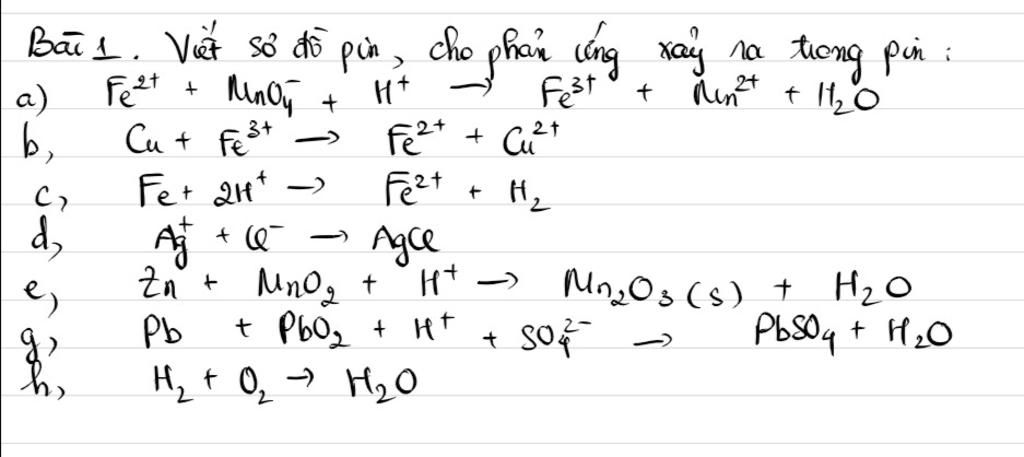 Bài 1. Viết sơ đồ pin, cho phản ứng xảy ra trong pin :
a) Fe²⁺ + MnO₄⁻ + H⁺ → Fe³⁺ + Mn²⁺ + H₂O
b, Cu + Fe³⁺ → Fe²⁺ + Cu²⁺
c, Fe + 2H⁺ → Fe²⁺ + H₂
d, Ag⁺ + Cl⁻ → AgCl
e, Zn + MnO₂ + H⁺ → Mn₂O₃(s) + H₂O
g, Pb + PbO₂ + H⁺ + SO₄²⁻ → PbSO₄ + H₂O
h, H₂ + O₂ → H₂O